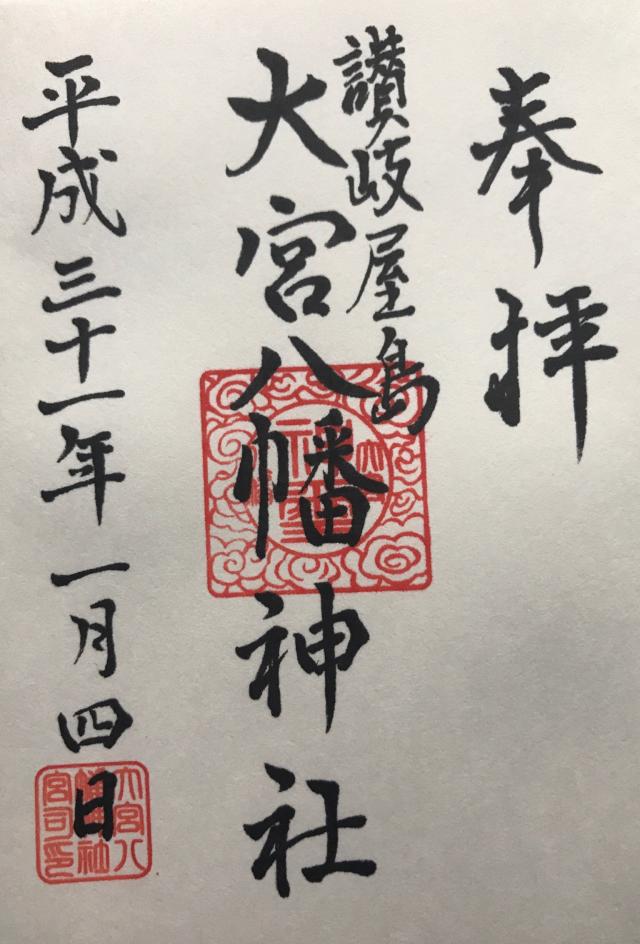 奉拝
讃岐屋島
大宮八幡神社
平成三十一年一月四日
大宮八
幡神社
宮司印